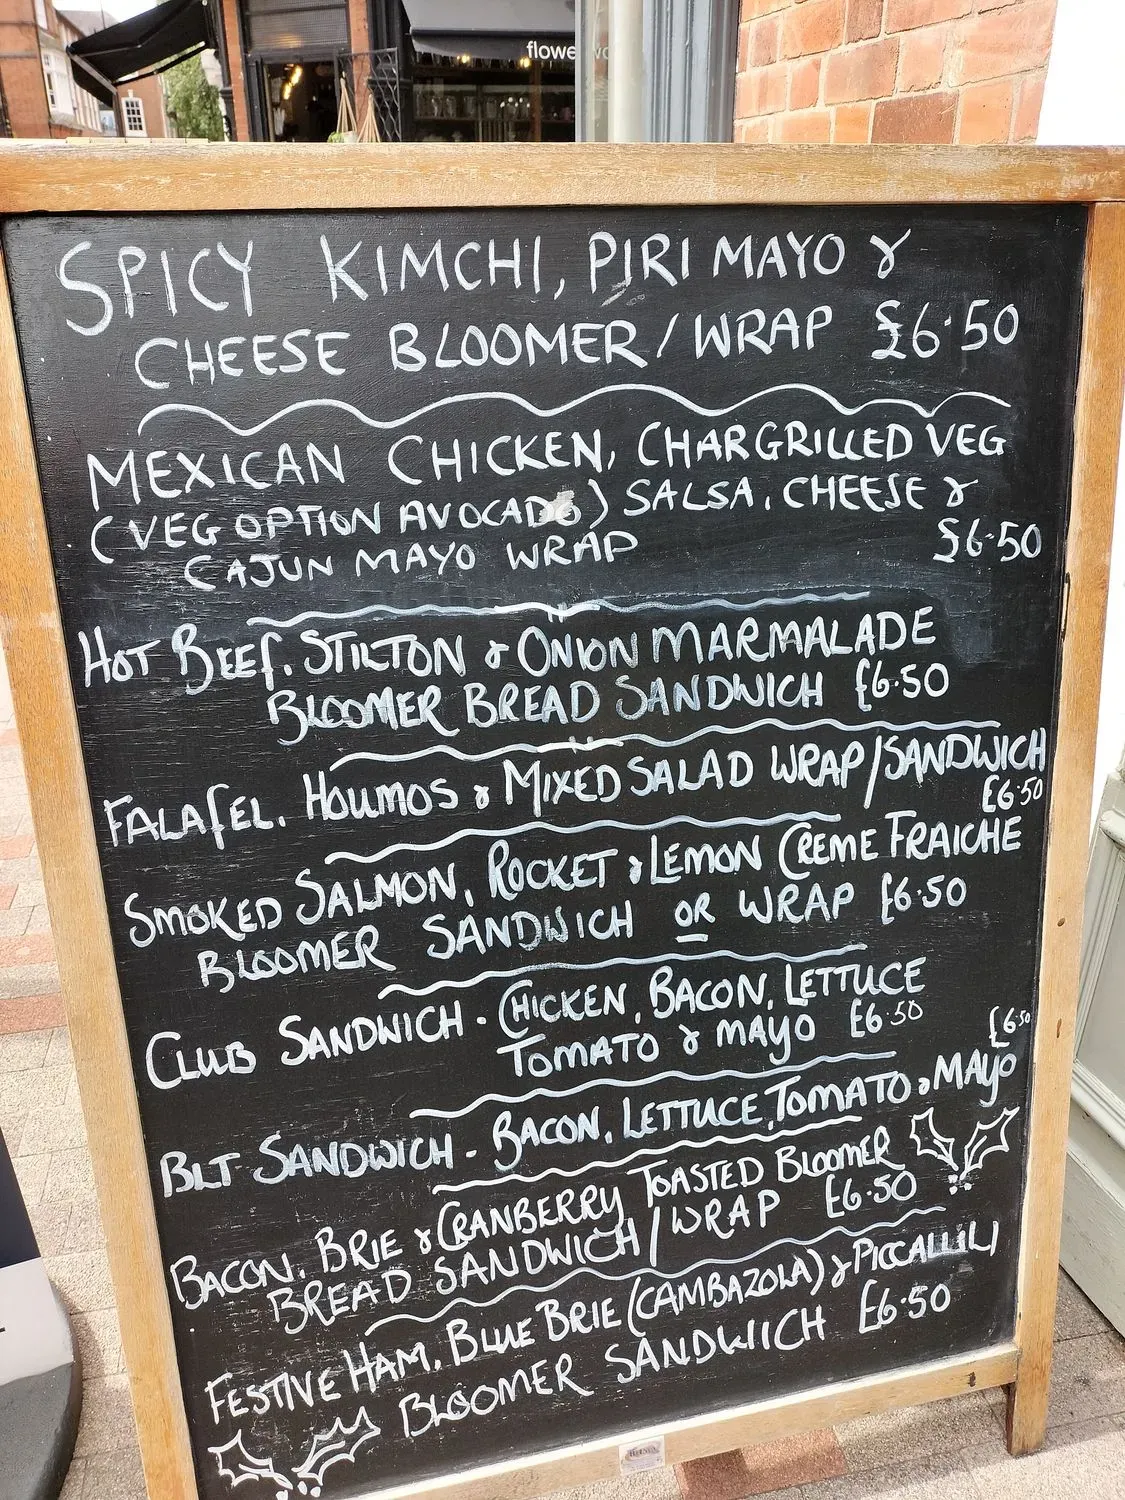 flowe
SPICY KIMCHI, PIRI MAYO &
CHEESE BLOOMER / WRAP £6.50
MEXICAN CHICKEN, CHARGRILLED VEG
(VEG OPTION AVOCADO) SALSA, CHEESE &
CAJUN MAYO WRAP £6.50
HOT BEEF, STILTON & ONION MARMALADE
BLOOMER BREAD SANDWICH £6.50
FALAFEL, HOUMOS & MIXED SALAD WRAP/SANDWICH
£6.50
SMOKED SALMON, ROCKET & LEMON CREME FRAICHE
BLOOMER SANDWICH OR WRAP £6.50
CLUB SANDWICH - CHICKEN, BACON, LETTUCE
TOMATO & MAYO £6.50
£6.50
BLT SANDWICH - BACON, LETTUCE, TOMATO & MAYO
BACON, BRIE & CRANBERRY TOASTED BLOOMER
BREAD SANDWICH / WRAP £6.50
FESTIVE HAM, BLUE BRIE (CAMBAZOLA) & PICCALLILI
BLOOMER SANDWICH £6.50